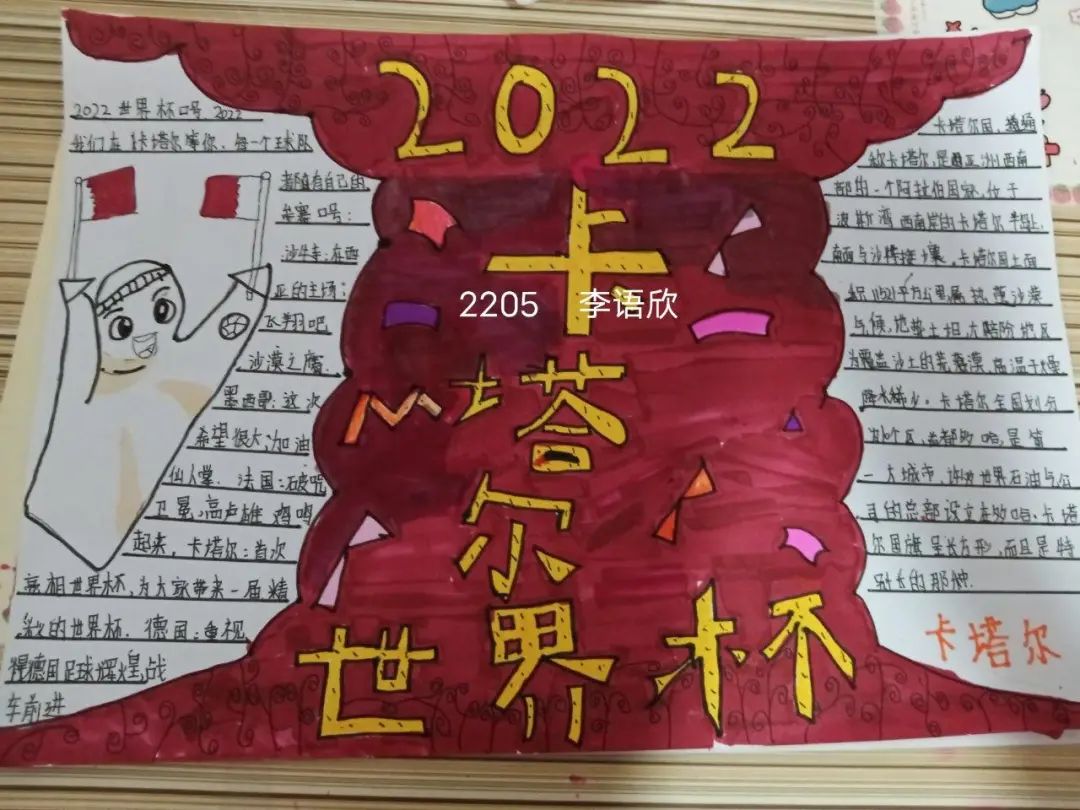 2022
卡
塔
尔
世界杯
2205 李语欣
2022世界杯口号 2022
我们在卡塔尔等你、每一个球队
都随有自己的
参赛口号：
沙牛寺：在西
亚的主场；
飞翔吧
沙漠之鹰.
墨西哥：这次
希望很大，加油
仙人掌. 法国：破咒
卫冕，高卢雄鸡鸣
起来. 卡塔尔：首次
亮相世界杯，为大家带来一届精
彩的世界杯. 德国：重视
德国足球辉煌，战
车前进
卡塔尔国，
称卡塔尔，是亚洲西南
部的一个阿拉伯国家，位于
波斯湾西南岸的卡塔尔半岛上，
南面与沙特接壤。卡塔尔国土面
积11521平方公里属热带沙漠
气候，地势土坦，大部份地区
为覆盖沙土的荒漠，高温干燥
降水稀少。卡塔尔全国划分
为个区，首都多哈，是第
一大城市，许多世界石油气公
司的总部设立在多哈、卡塔
尔国旗呈长方形，而且是特
别长的那种.
卡塔尔